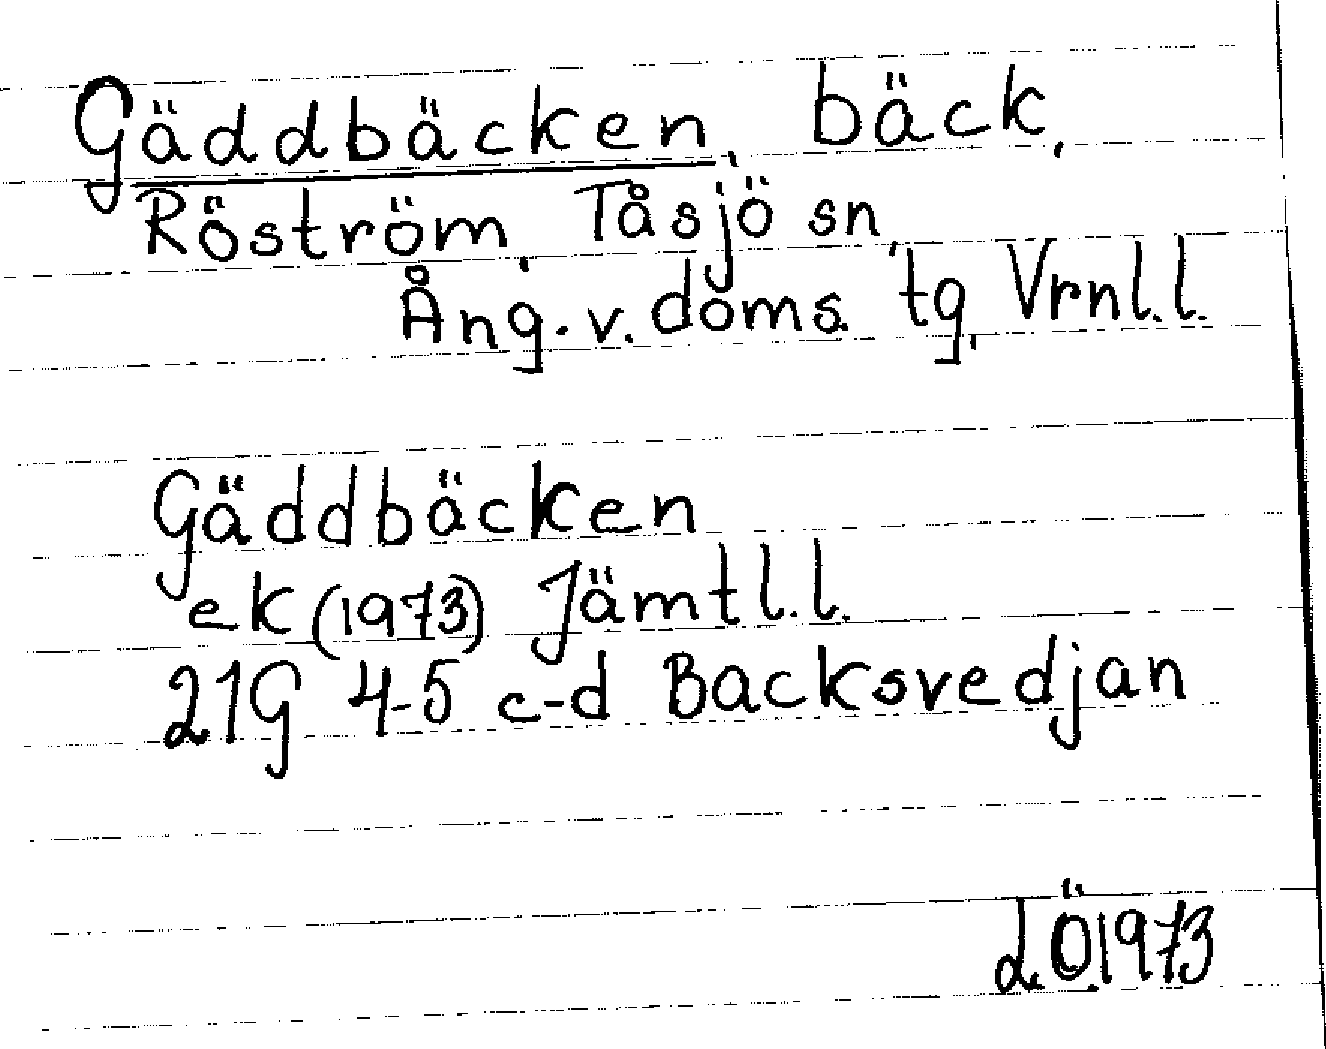 Gäddbäcken, bäck,
Röström, Tåsjö sn,
Ång. v. doms. tg, Vrnl. l.
Gäddbäcken
ek (1973) Jämtl. l.
21G 4-5 c-d Backsvedjan
L.Ö.1973